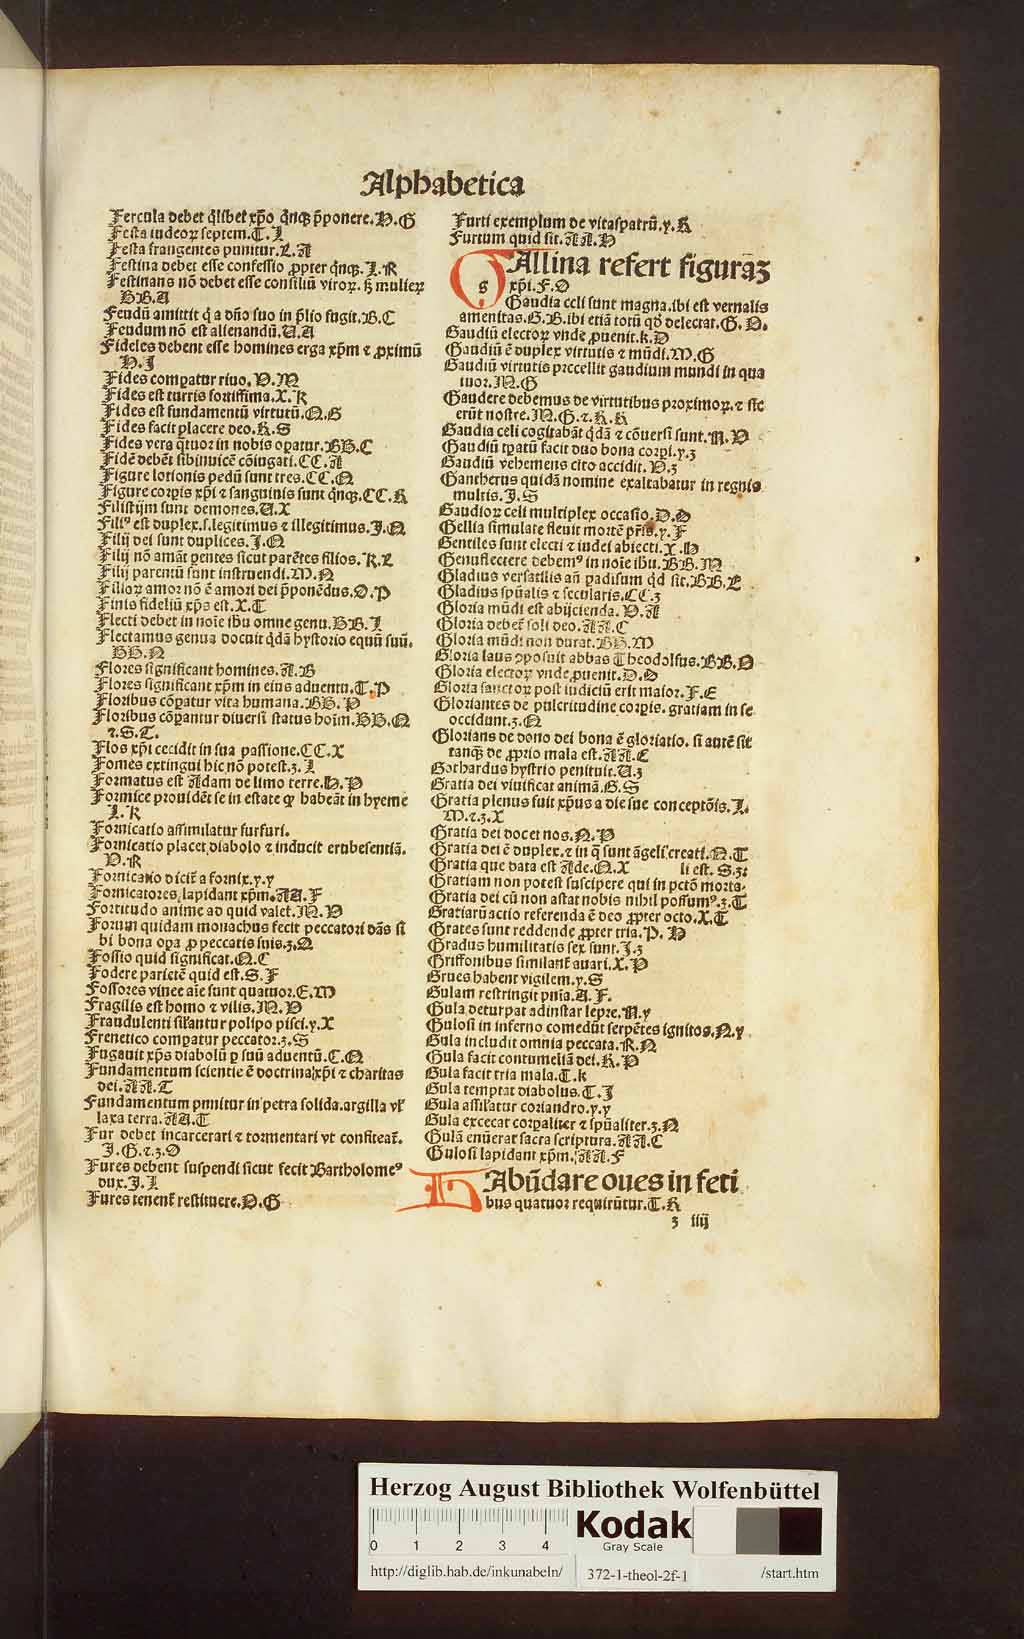 Alphabetica
Fercula debet q̄libet xp̄o q̄nqꝫ p̄ponere.H.G
Festa iudeoꝝ septem.T.I
Festa frangentes puniūtur.L.A
Festina debet esse confessio ꝓpter q̄nqꝫ.I.R
Festinans nō debet esse consiliū viroꝝ. sꝫ mulieꝝ
BB.A
Feudū amittit q̄ a dn̄o suo in p̄lio fugit.B.C
Feudum nō est alienandū.U.A
Fideles debent esse homines erga xp̄m ⁊ ꝓximū
H.I
Fides comꝑatur riuo.P.M
Fides est turris fortissima.X.R
Fides est fundamentū virtutū.Q.G
Fides facit placere deo.K.S
Fides vera q̄tuor in nobis oꝑatur.BB.C
Fidē debēt sibinuicē cōiugati.CC.A
Figure lotionis pedū sunt tres.CC.Q
Figure corꝑis xp̄i ⁊ sanguinis sunt q̄nqꝫ.CC.K
Filistijm sunt demones.U.X
Filiꝰ est duplex.s.legitimus ⁊ illegitimus.I.Q
Filij dei sunt duplices.I.Q
Filij nō amāt ꝑentes sicut parētes filios.R.L
Filij parentū sunt instruendi.M.N
Filioꝝ amor nō ē amori dei p̄ponēdus.O.P
Finis fideliū xp̄s est.X.T
Flecti debet in noīe ihu omne genu.BB.I
Flectamus genua docuit q̄dā hystorio equū suū.
BB.N
Flores significant homines.A.B
Flores significant xp̄m in eius aduentu.T.P
Floribus cōꝑatur vita humana.BB.P
Floribus cōꝑantur diuersi status hoīm.BB.Q
⁊.S.T.
Flos xp̄i cecidit in sua passione.CC.X
Fomes extingui hic nō potest.z.I
Formatus est Adam de limo terre.H.P
Formice prouidēt se in estate qꝫ habeāt in hyeme
I.R
Fornicatio assimilatur furfuri.
Fornicatio placet diabolo ⁊ inducit erubesentiā.
P.R
Fornicatio dicit̄ a fornix.y.y
Fornicatores lapidant xp̄m.AA.F
Fortitudo anime ad quid valet.M.P
Forum quidam monachus fecit peccatori dās si
bi bona oꝑa ꝓ peccatis suis.z.Q
Fossio quid significat.Q.C
Fodere parietē quid est.S.F
Fossores vinee aīe sunt quatuor.E.M
Fragilis est homo ⁊ vilis.M.P
Fraudulenti sil̄antur polipo pisci.y.X
Frenetico comꝑatur peccator.z.S
Fugauit xp̄s diabolū ꝑ suū aduentū.C.Q
Fundamentum scientie ē doctrina xp̄i ⁊ charitas
dei.AA.T
Fundamentum ponitur in petra solida.argilla vl̄
laxa terra.AA.T
Fur debet incarcerari ⁊ tormentari vt confiteat̄.
I.G.⁊.z.O
Fures debent suspendi sicut fecit Bartholomeꝰ
dux.I.I
Fures tenent̄ restituere.P.G
Furti exemplum de vitaspatrū.y.K
Furtum quid sit.AA.H
GAllina refert figurāz
xp̄i.F.O
Gaudia celi sunt magna.ibi est vernalis
amenitas.G.B.ibi etiā totū qd̄ delectat.G.P.
Gaudiū electoꝝ vnde ꝓuenit.k.D
Gaudiū ē duplex virtutis ⁊ mūdi.M.G
Gaudiū virtutis precellit gaudium mundi in qua
tuor.M.G
Gaudere debemus de virtutibus proximoꝝ.⁊ sic
erūt nostre.M.G.⁊.K.K
Gaudia celi cogitabāt q̄dā ⁊ cōuersi sunt.N.P
Gaudiū tꝑatū facit duo bona corꝑi.y.z
Gaudiū vehemens cito accidit.P.z
Gantherus quidā nomine exaltabatur in regnis
multis.I.S
Gaudioꝝ celi multiplex occasio.D.O
Gellia simulate fleuit mortē pr̄is.y.F
Gentiles sunt electi ⁊ iudei abiecti.X.H
Genuflectere debemꝰ in noīe ihu.BB.M
Gladius versatilis añ ꝑadisum qd̄ sit.BB.E
Gladius spūalis ⁊ secularis.CC.z
Gloria mūdi est abijcienda.P.A
Gloria debet̄ soli deo.AA.C
Gloria mūdi non durat.BB.M
Gloria laus ꝯposuit abbas Theodolfus.BB.Q
Gloria electoꝝ vnde ꝓuenit.D.O
Gloria sanctoꝝ post iudiciū erit maior.F.E
Gloriantes de pulcritudine corꝑis. gratiam in se
occidunt.z.Q
Glorians de dono dei bona ē gloriatio. si autē sit
tanqꝫ de ꝓprio mala est.AA.C
Gothardus hystrio penituit.U.z
Gratia dei viuificat animā.G.S
Gratia plenus fuit xp̄us a die sue conceptōis.I.
M.⁊.z.X
Gratia dei docet nos.N.P
Gratia dei ē duplex.⁊ in q̄ sunt āgeli creati.Q.T
Gratia que data est Ade.Q.X li est. S.z:
Gratiam non potest suscipere qui in pctō morta-
Gratia dei cū non astat nobis nihil possumꝰ.z.T
Gratiarū actio referenda ē deo ꝓpter octo.X.T
Grates sunt reddende ꝓpter tria.P.H
Gradus humilitatis sex sunt.I.z
Griffonibus similant̄ auari.X.P
Grues habent vigilem.y.S
Gulam restringit pn̄ia.A.F.
Gula deturpat adinstar lepre.N.y
Gulosi in inferno comedūt serpētes ignitos.N.y
Gula includit omnia peccata.R.N
Gula facit contumeliā dei.K.P
Gula facit tria mala.T.k
Gula temptat diabolus.T.I
Gula assil̄atur coriandro.y.y
Gula excecat corꝑaliter ⁊ spūaliter.z.N
Gulā enūerat sacra scriptura.AA.C
Gulosi lapidant xp̄m.AA.F
HAbūdare oues in feti
bus quatuor requirūtur.T.K
z iiij
Herzog August Bibliothek Wolfenbüttel
0 1 2 3 4
Kodak
Gray Scale
http://diglib.hab.de/inkunabeln/ 372-1-theol-2f-1 /start.htm